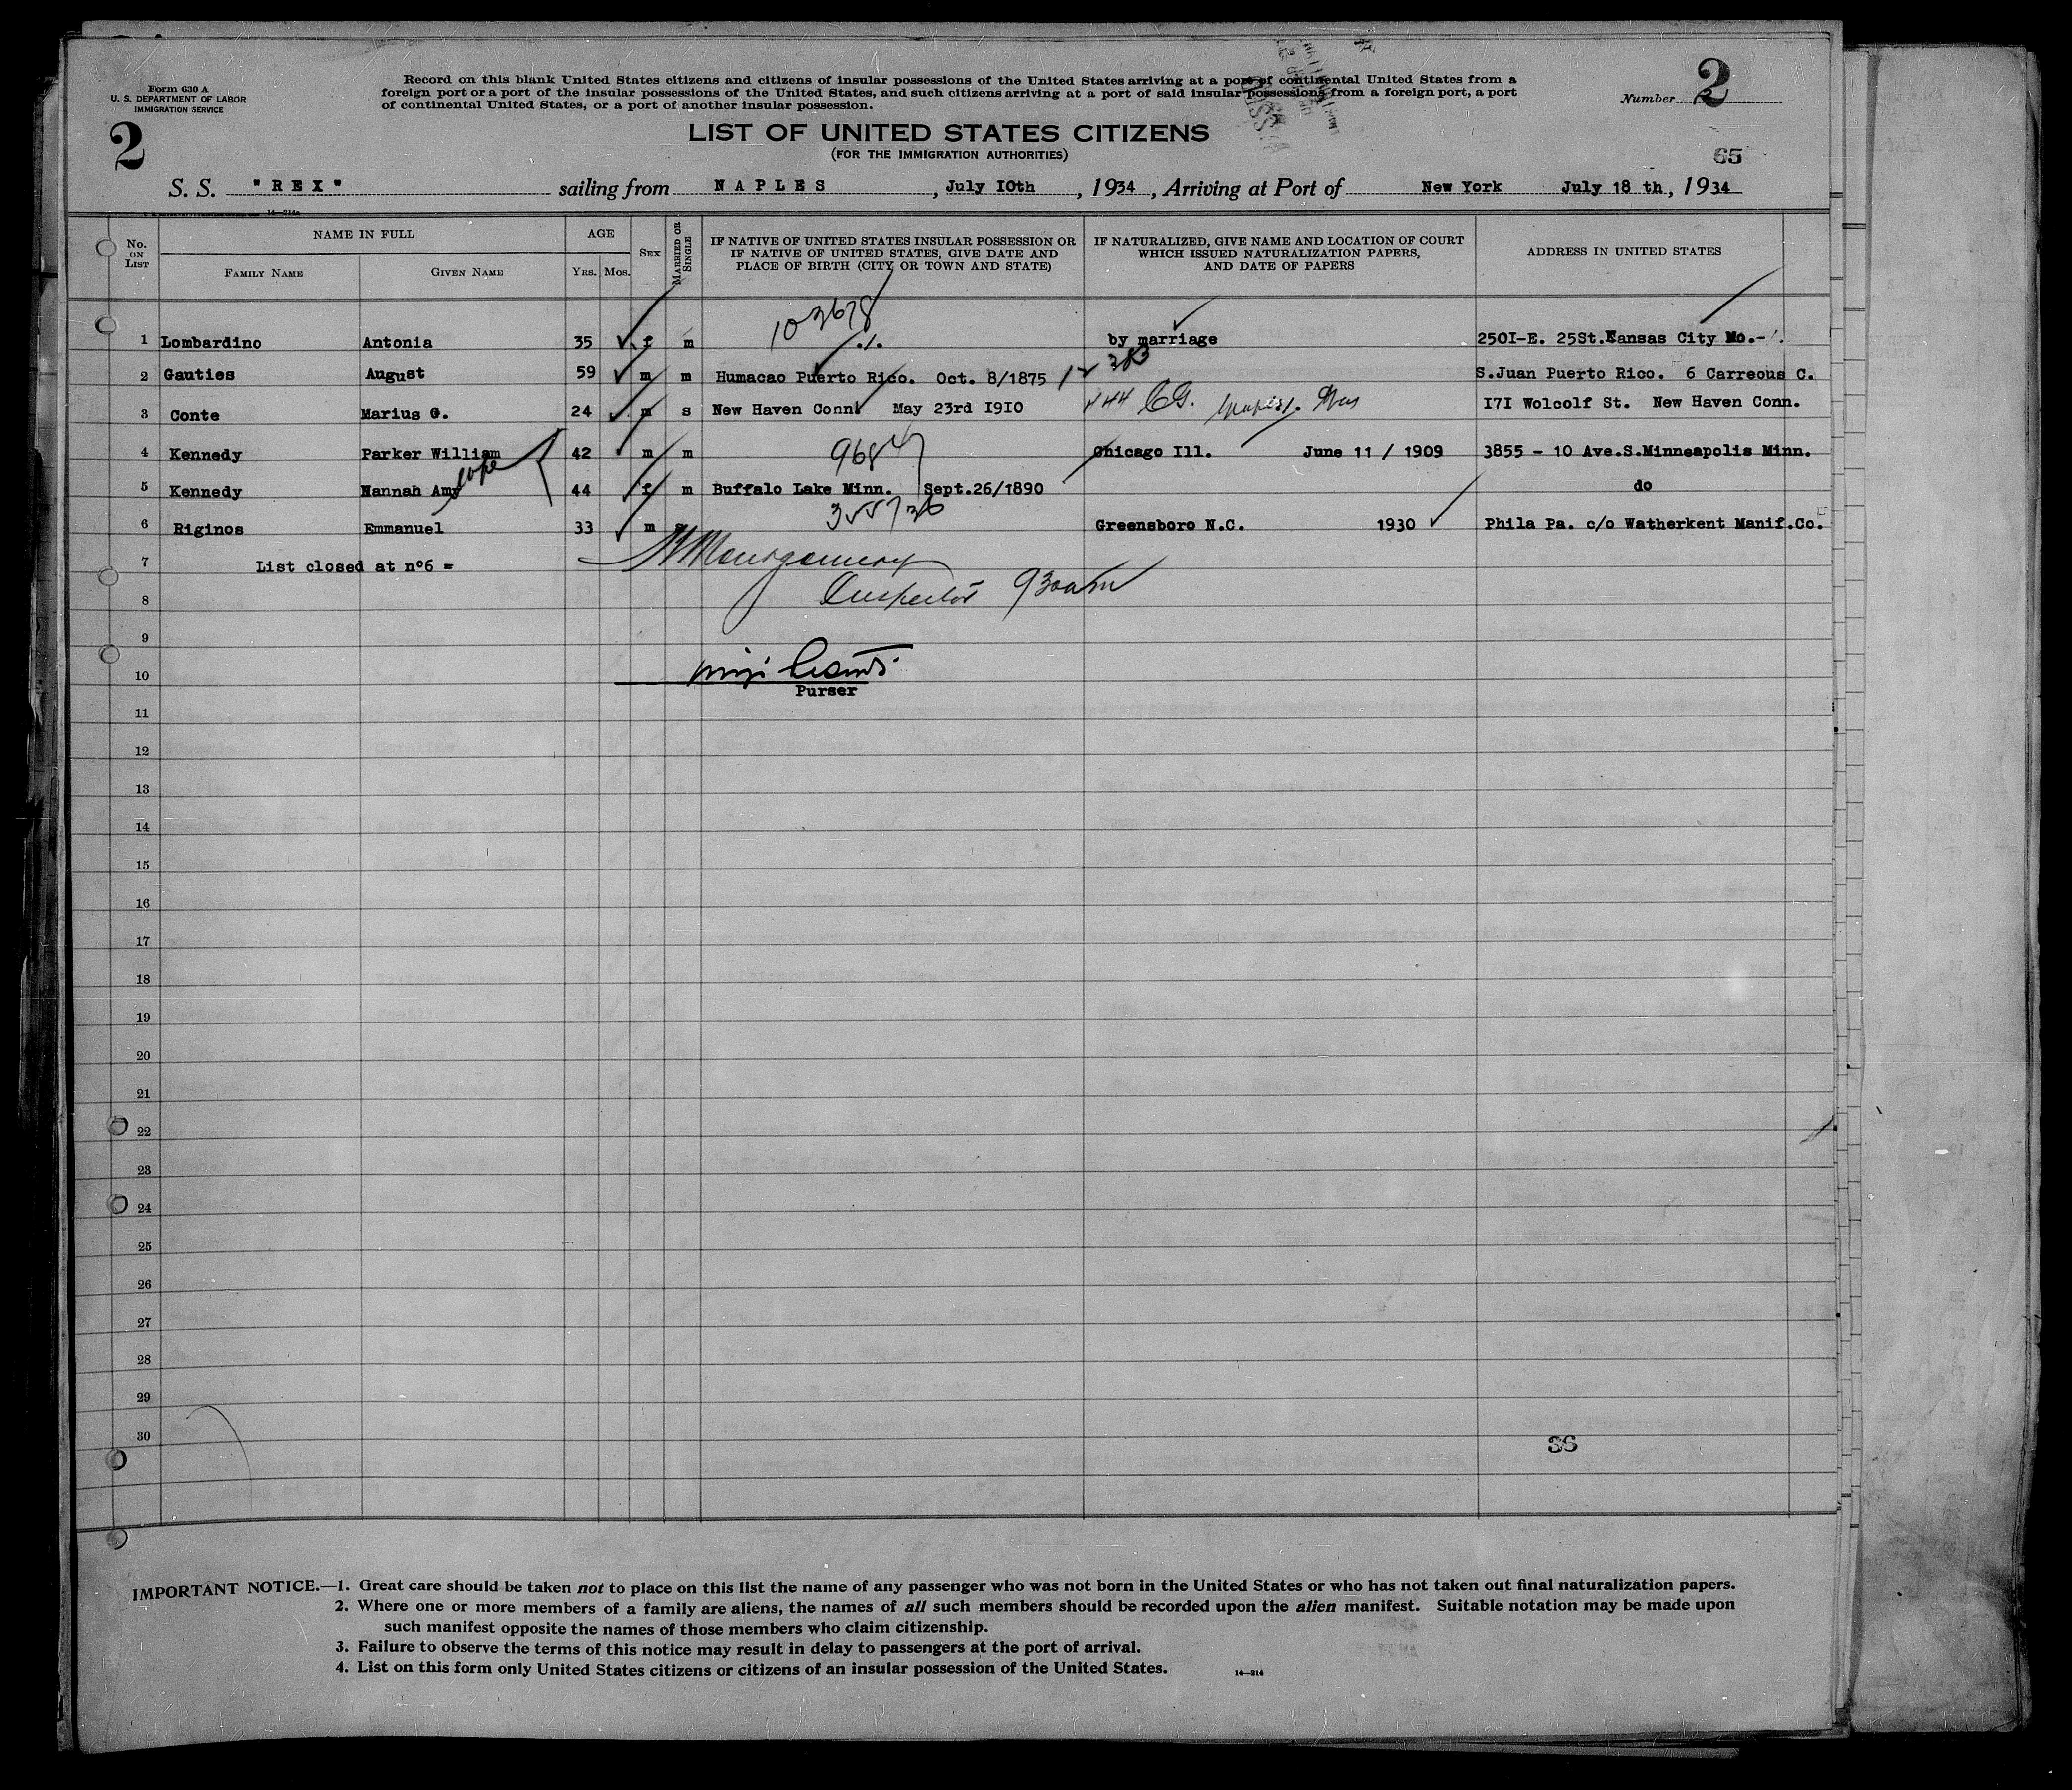 Form 630 A
U. S. DEPARTMENT OF LABOR
IMMIGRATION SERVICE
2
Record on this blank United States citizens and citizens of insular possessions of the United States arriving at a port of continental United States from a
foreign port or a port of the insular possessions of the United States, and such citizens arriving at a port of said insular possessions from a foreign port, a port
of continental United States, or a port of another insular possession.
Number 2
LIST OF UNITED STATES CITIZENS
(FOR THE IMMIGRATION AUTHORITIES)
65
S. S. "REX" sailing from NAPLES, July I0th, 1934, Arriving at Port of New York July 18 th, 1934
14—214
No. ON LIST
NAME IN FULL
FAMILY NAME
GIVEN NAME
AGE
YRS. MOS.
SEX
MARRIED OR SINGLE
IF NATIVE OF UNITED STATES INSULAR POSSESSION OR
IF NATIVE OF UNITED STATES, GIVE DATE AND
PLACE OF BIRTH (CITY OR TOWN AND STATE)
IF NATURALIZED, GIVE NAME AND LOCATION OF COURT
WHICH ISSUED NATURALIZATION PAPERS,
AND DATE OF PAPERS
ADDRESS IN UNITED STATES
103678
1 Lombardino Antonia 35 f m ./. by marriage 250I-E. 25St.Kansas City Mo.-
2 Gauties August 59 m m Humacao Puerto Rico. Oct. 8/1875 S.Juan Puerto Rico. 6 Carreous C.
3 Conte Marius G. 24 m s New Haven Conn. May 23rd I9I0 444 I7I Wolcolf St. New Haven Conn.
4 Kennedy Parker William 42 m m 9684 Chicago Ill. June 11 / 1909 3855 - 10 Ave.S.Minneapolis Minn.
5 Kennedy Hannah Amy 44 f m Buffalo Lake Minn. Sept.26/1890 do
6 Riginos Emmanuel 33 m s Greensboro N.C. 1930 Phila Pa. c/o Watherkent Manif.Co.
7 List closed at nº6 =
Montgomery
8 Inspector 930am
9
10
Purser
11
12
13
14
15
16
17
18
19
20
21
22
23
24
25
26
27
28
29
30
36
IMPORTANT NOTICE.—1. Great care should be taken not to place on this list the name of any passenger who was not born in the United States or who has not taken out final naturalization papers.
2. Where one or more members of a family are aliens, the names of all such members should be recorded upon the alien manifest. Suitable notation may be made upon
such manifest opposite the names of those members who claim citizenship.
3. Failure to observe the terms of this notice may result in delay to passengers at the port of arrival.
4. List on this form only United States citizens or citizens of an insular possession of the United States.
14—214